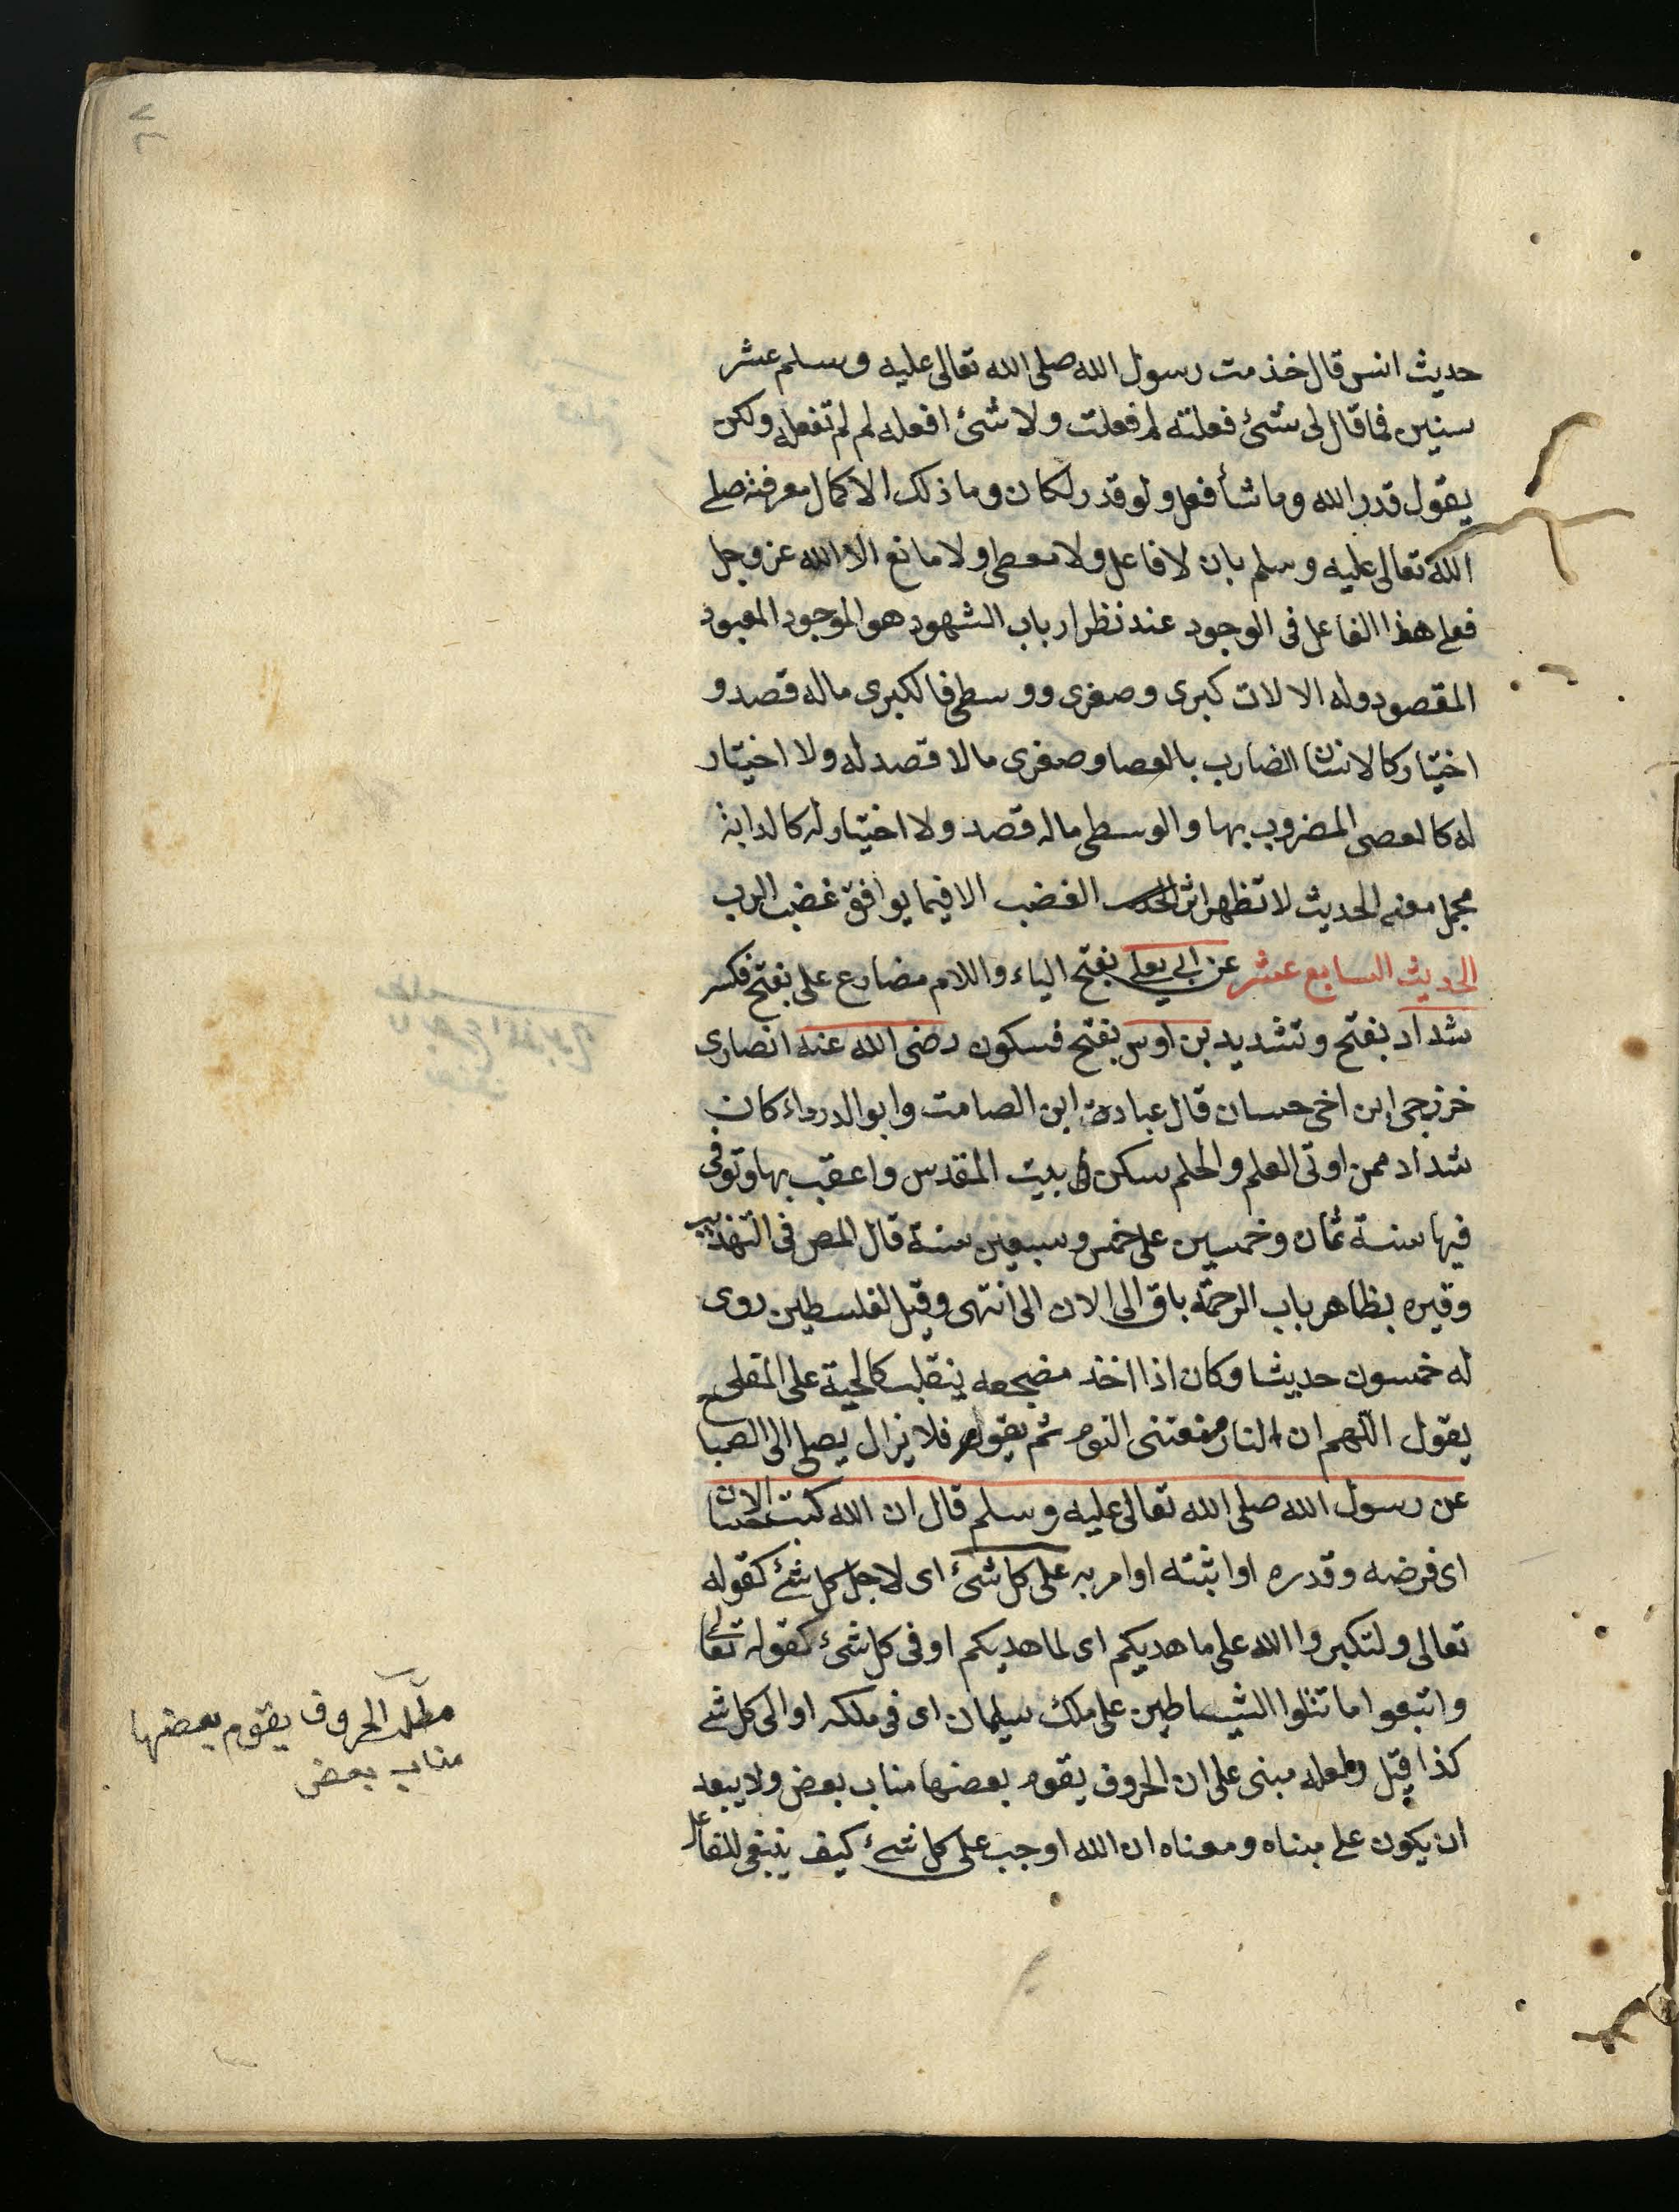 حديث انس قال خذمت رسول الله صلى الله تعالى عليه وسلم عشر
سنين فما قال لى شئ فعلته لم فعلت ولا شئ افعله لم لم تفعله ولكن
يقول قدر الله وما شأ فعل ولو قدر لكان وما ذلك الا كمال معرفته صلى
الله تعالى عليه وسلم بان لا فاعل ولا معطى ولا مانع الا الله عز وجل
فعلى هذا الفاعل فى الوجود عند نظر ارباب الشهود هو الموجود المعبود
المقصود وله الالات كبرى وصغرى ووسطى فالكبرى ماله قصد و
اختيار كالانسان الضارب بالعصا وصغرى مالا قصد له ولا اختيار
له كالعصى المضروب بها والوسطى ماله قصد ولا اختيار له كالدابة
مجمل معنى الحديث لا تظهر اثر الغضب الا فيما يوافق غضب الرب
الحديث السابع عشر عن ابي يعلى بفتح الياء واللام مضارع على بفتح فكسر
شداد بفتح وتشديد بن اوس بفتح فسكون رضى الله عنه انصارى
خزرجى ابن اخى حسان قال عبادة ابن الصامت وابو الدرداء كان
شداد ممن اوتى العلم والحلم سكن بيت المقدس واعقب بها وتوفى
فيها سنة ثمان وخمسين على خمس وسبعين سنة قال المص فى التهذيب
وقبره بظاهر باب الرحمة باق الى الان الى انتهى وقيل لفلسطين روى
له خمسون حديثا وكان اذا اخذ مضجعه ينقلب كالحية على المقلى
يقول اللهم ان النار منعتنى النوم ثم يقوم فلا يزال يصلى الى الصبا
عن رسول الله صلى الله تعالى عليه وسلم قال ان الله كتب الاحسان
اى فرضه وقدره او اثبته او امر به على كل شئ اى لاجل كل شئ كقوله
تعالى ولتكبروا الله على ما هديكم اى لما هديكم او فى كل شئ كقوله تعالى
واتبعوا ما تتلوا الشياطين على ملك سليمان اى فى ملكه او الى كل شئ
كذا قيل ولعله مبنى على ان الحروف يقوم بعضها مناب بعض ولا يبعد
ان يكون على مبناه ومعناه ان الله اوجب على كل شئ كيف ينبغى للفاعل
مطلب الحروف يقوم بعضها
مناب بعض